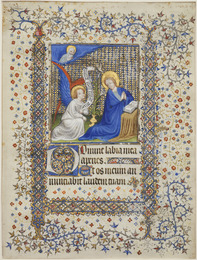 Domine labia mea
aperies.
Et os meum an
nuntiabit laudem tuam.